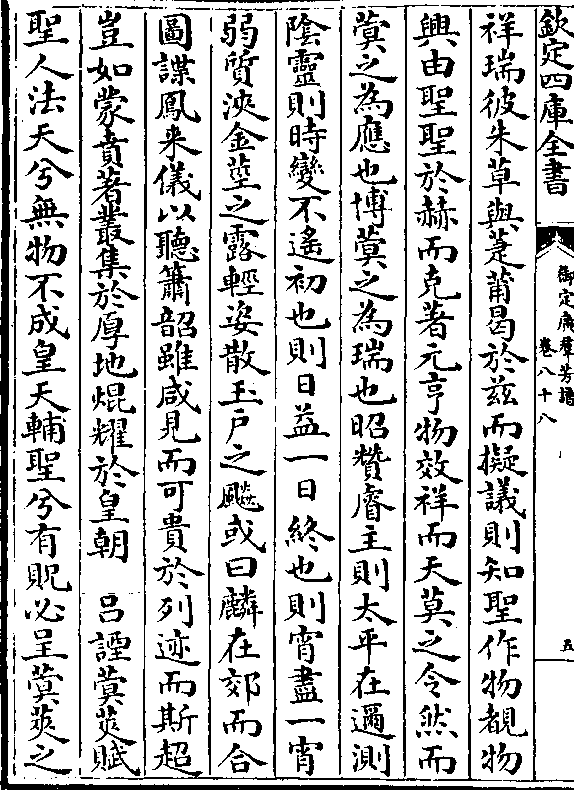 欽定四庫全書
御定廣羣芳譜
卷八十八
五
祥瑞彼朱草與萐莆曷於兹而擬議則知聖作物覩物
興由聖聖於赫而克著元亨物效祥而天莫之令然而
蓂之為應也博蓂之為瑞也昭贊睿主則太平在邇測
陰靈則時變不遙初也則日益一日終也則宵盡一宵
弱質浹金莖之露輕姿散玉戸之飈或曰麟在郊而合
圖諜鳳来儀以聽簫韶雖咸見而可貴於列迹而斯超
豈如蒙賁著叢集於厚地焜耀於皇朝 吕諲蓂莢賦
聖人法天兮無物不成皇天輔聖兮有貺必呈蓂莢之